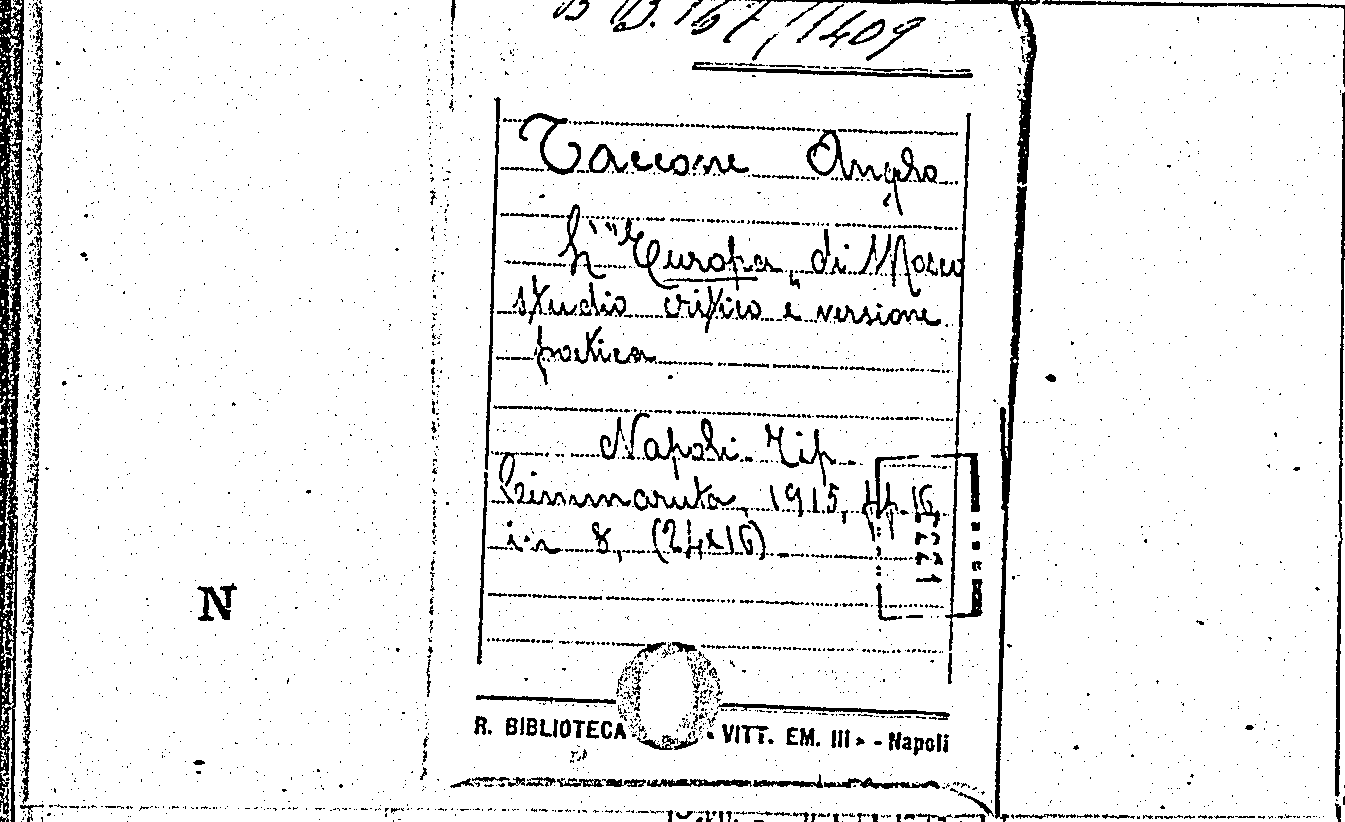 167/1409
Taccone Angelo
L'"Europa" di Mosco
studio critico e versione
poetica
Napoli. Tip.
Cimmaruta, 1915, pp. 16
in 8, (24x16).
N
R. BIBLIOTECA « VITT. EM. III » - Napoli